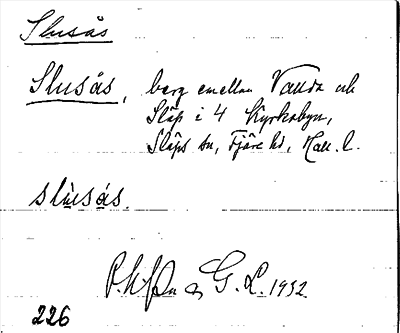 Slusås
Slusås, berg emellan Valldа och
Släp i 4 Kyrkobyn,
Släps sn, Fjäre hd, Hall. l.
slùsás.
G. L. 1932
226